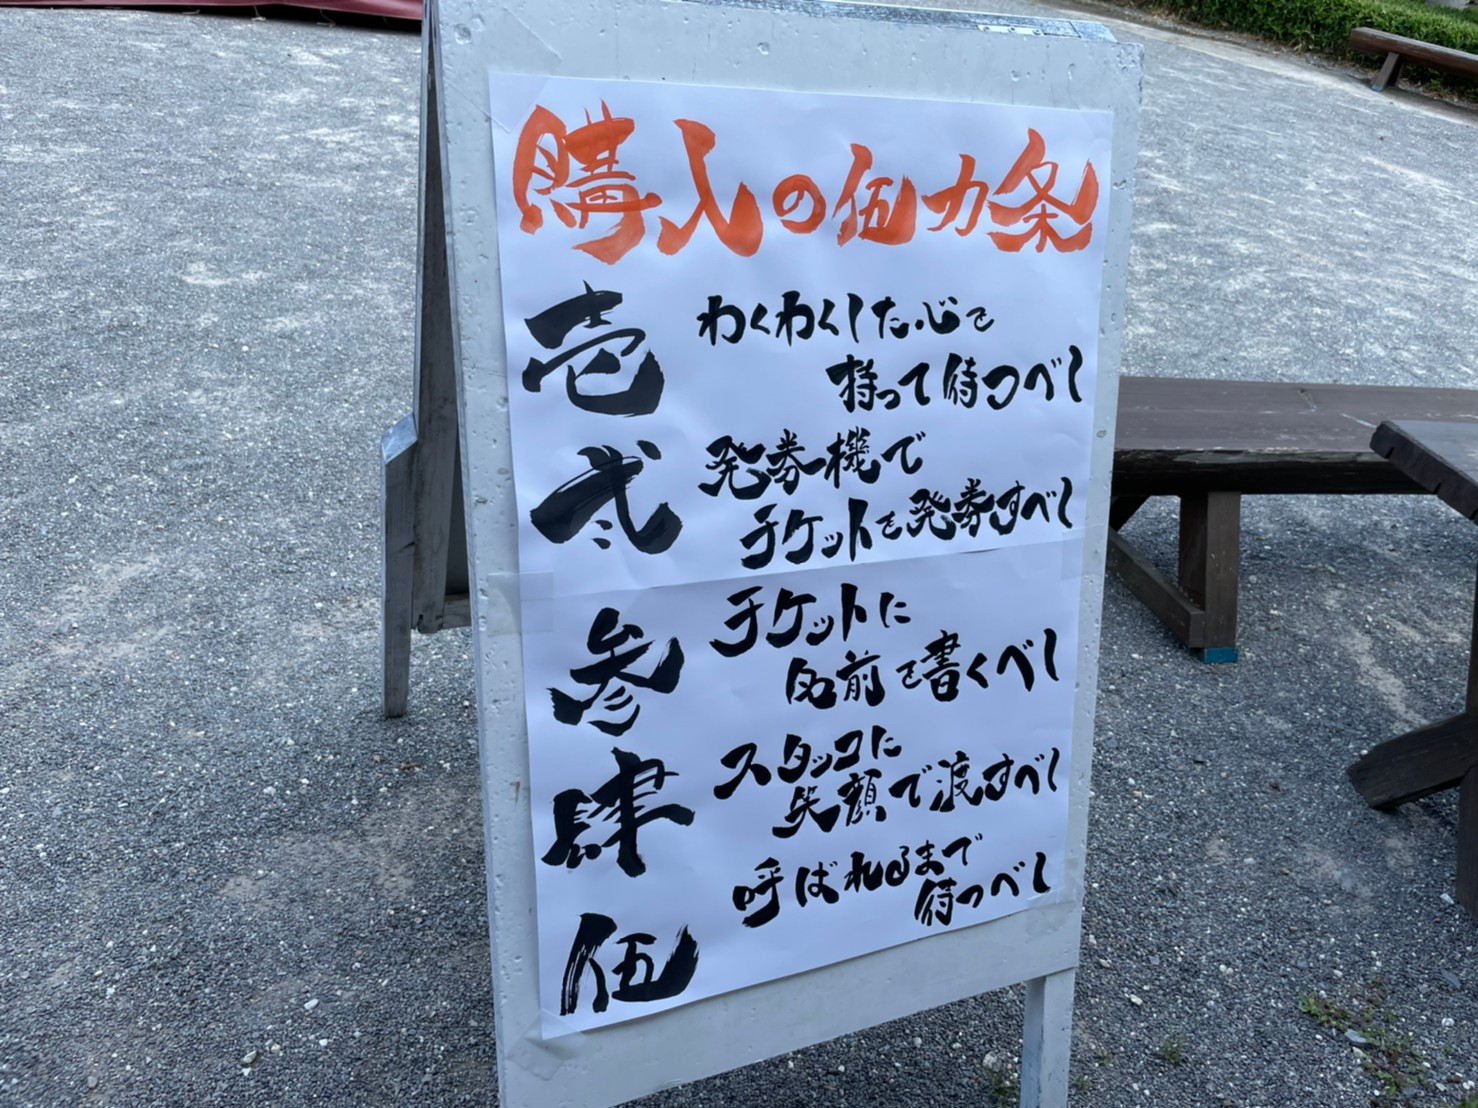 購入の伍カ条
壱
わくわくした心を
持って待つべし
弐
発券機で
チケットを発券すべし
参
チケットに
名前を書くべし
肆
スタッフに
笑顔で渡すべし
伍
呼ばれるまで
待つべし